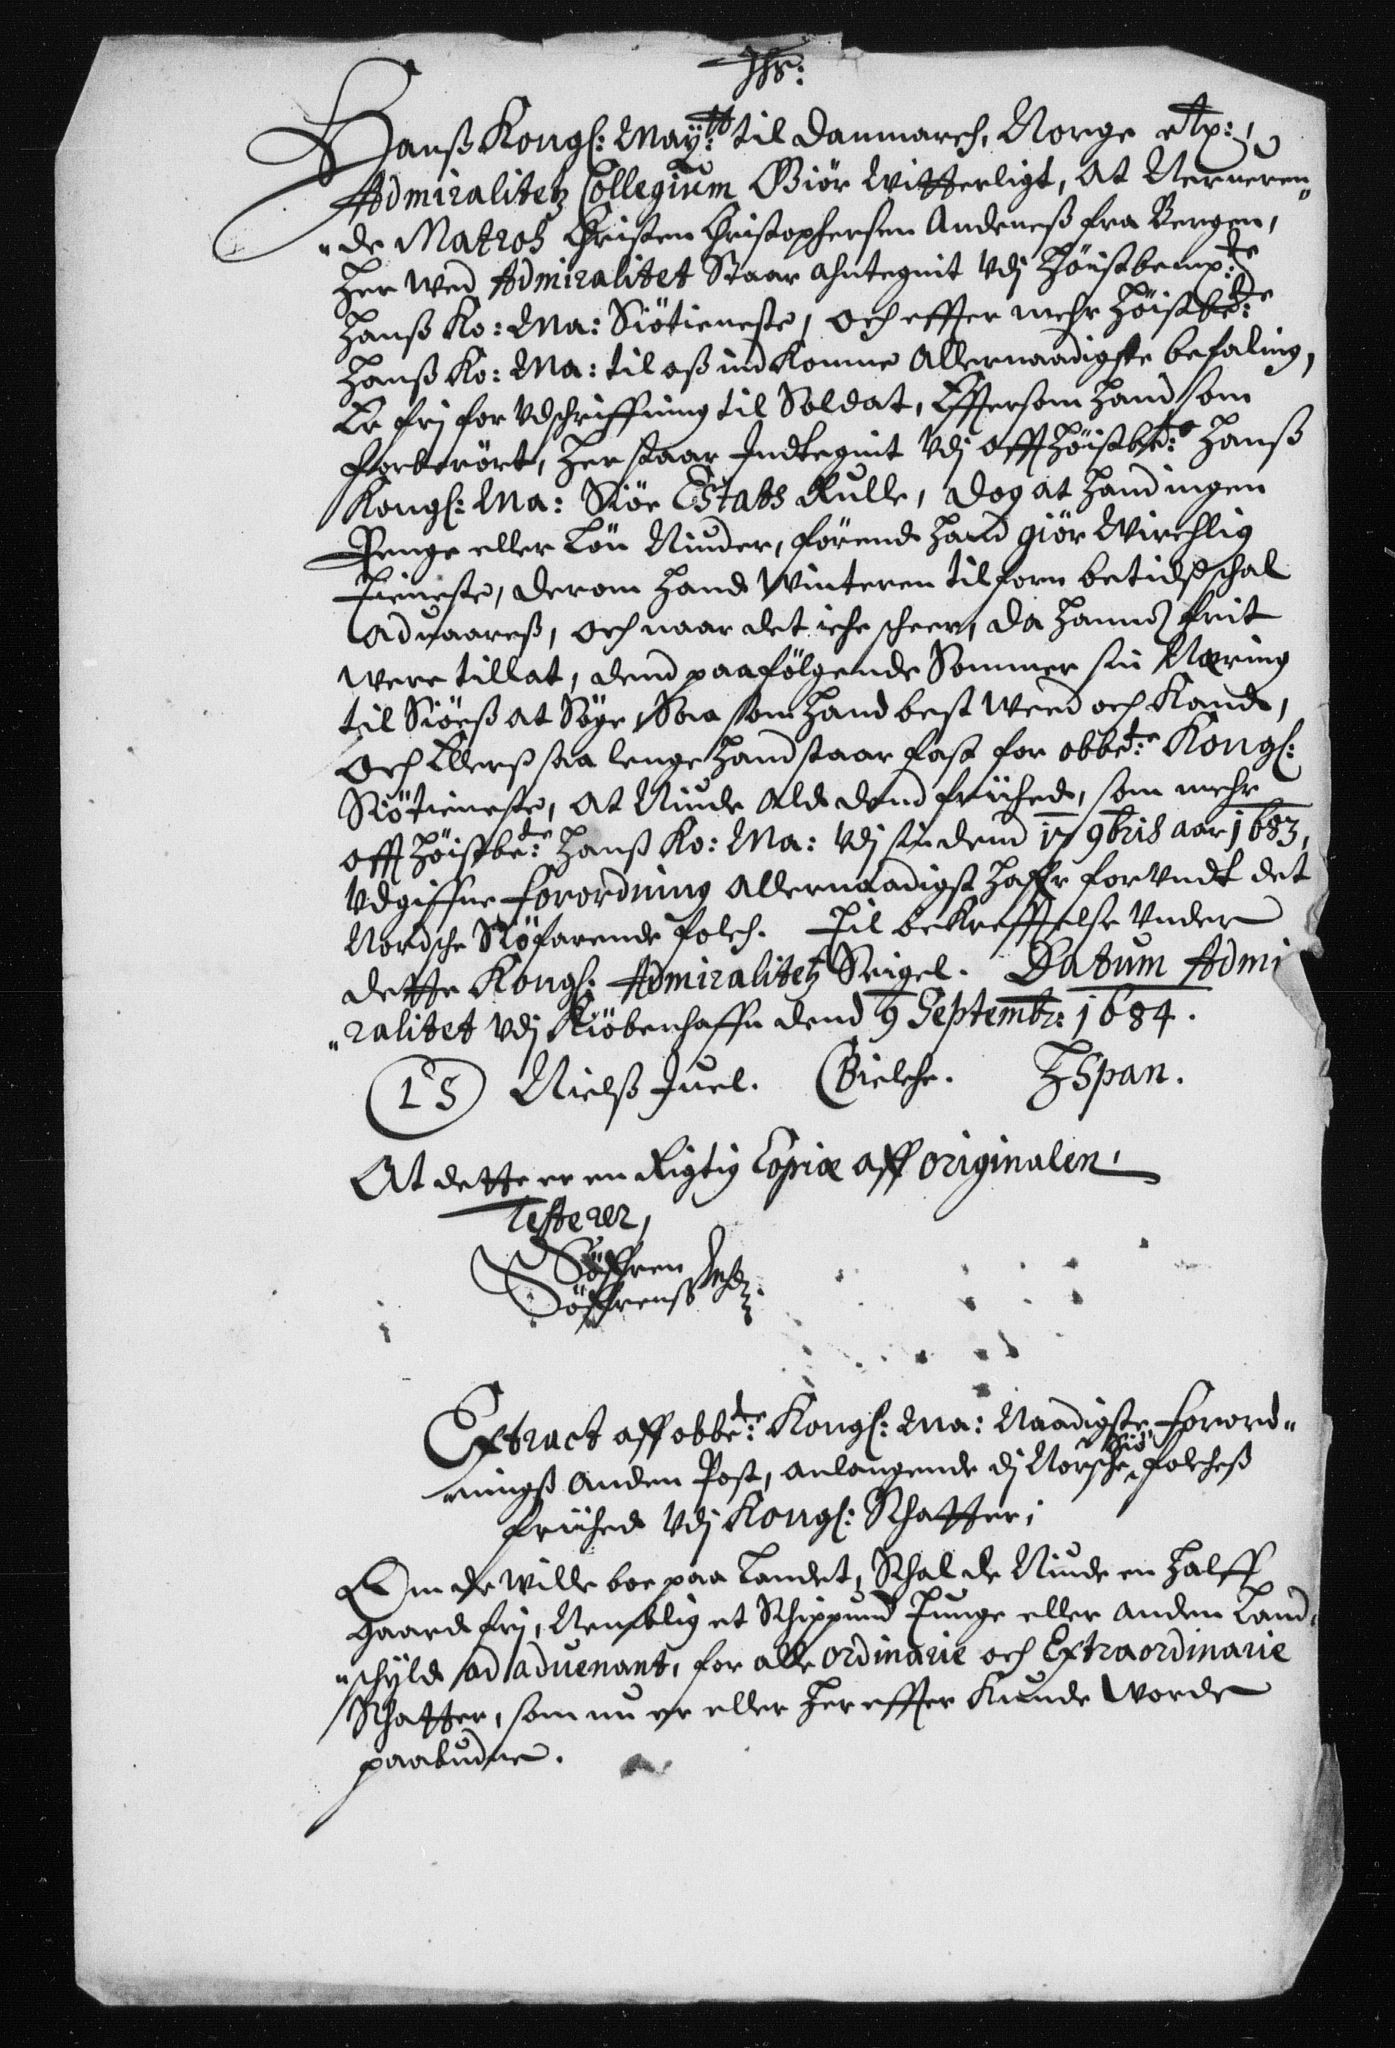 Jhs:
Hanß Kongl: May:tt til Danmarch, Norge etp:,
Admiralitetz Collegium Giör Witterligt, At Nerueren„
„de Matros Christen Christophersen Andeneß fra Bergen,
Her wed Admiralitet Staar Ahntegnit Vdj Höistbemp:te
Hanß Ko: Ma: Siötieneste, och effter mehr Höistbe:te
Hanß Ko: Ma: til oß ind Komne Allernaadigste befaling,
Er frj for Vdschriffning til Soldat, Effersom Hand som
forberört, Her staar Indtegnit Vdj off Höistbe:te Hanß
Kongl: Ma: Siöe Estats Rulle, dog at Hand ingen
Penge eller Lön Niuder, förend Hand giör Wirchlig
Tieneste, derom Hand Winteren tilforn betidß schal
Aduaareß, och naar det iche scheer, da Hannd frit
were tillat, dend paafölgende Sommer sin Næring
til Siöeß at Söge, Saa som Hand best Weed och Kand,
Och Ellerß saa lenge Hand staar fast for obbe:te Kongl:
Siötieneste, At Niude Ald dend friihed, som mehr
off Höistbe:de Hanß Ko: Ma: Vdj sin dend 17 9bris aar 1683,
Vdgiffne forordning Allernaadigst Haffr forVndt det
Nordsche Siöfarende folch. Til bekrefftelse Vnder
dette Kongl: Admiralitetz Seigel. Datum Admi
„ralitet Vdj Kiöbenhaffn dend 9 Septembr: 1684.
LS Nielß Juel. CBielche. HSpan.
At dette er en Rigtig Copiæ aff originalen,
Testerer,
Söffren
Söffrenß
Extract aff obbe:te Kongl: Ma: Naadigste forord„
„ningß Anden Post, anlangende dj Norsche Siö folcheß
friihed Vdj Kongl: Schatter;
Om de wille boe paa Landet, Schal de Niude en Halff
gaard frj, Nemblig et Schippund Tunge eller Anden Land„
„schyld ad aduenant, for alle ordinarie och Extraordinarie
Schatter, som nu er eller Her effter Kunde Worde
paabudne.